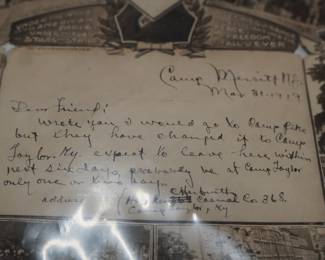 UNDER
FREEDOM IS
ALL I EVER
Camp Merritt N.J.
Mar 31-1919
Dear Friend:
Wrote you I would go to Camp Pike
but they have changed it to Camp
Taylor, Ky expect to leave here within
next six days, probably be at Camp Taylor
only one or two days.
address Casual Co. 368.
Camp Taylor, Ky